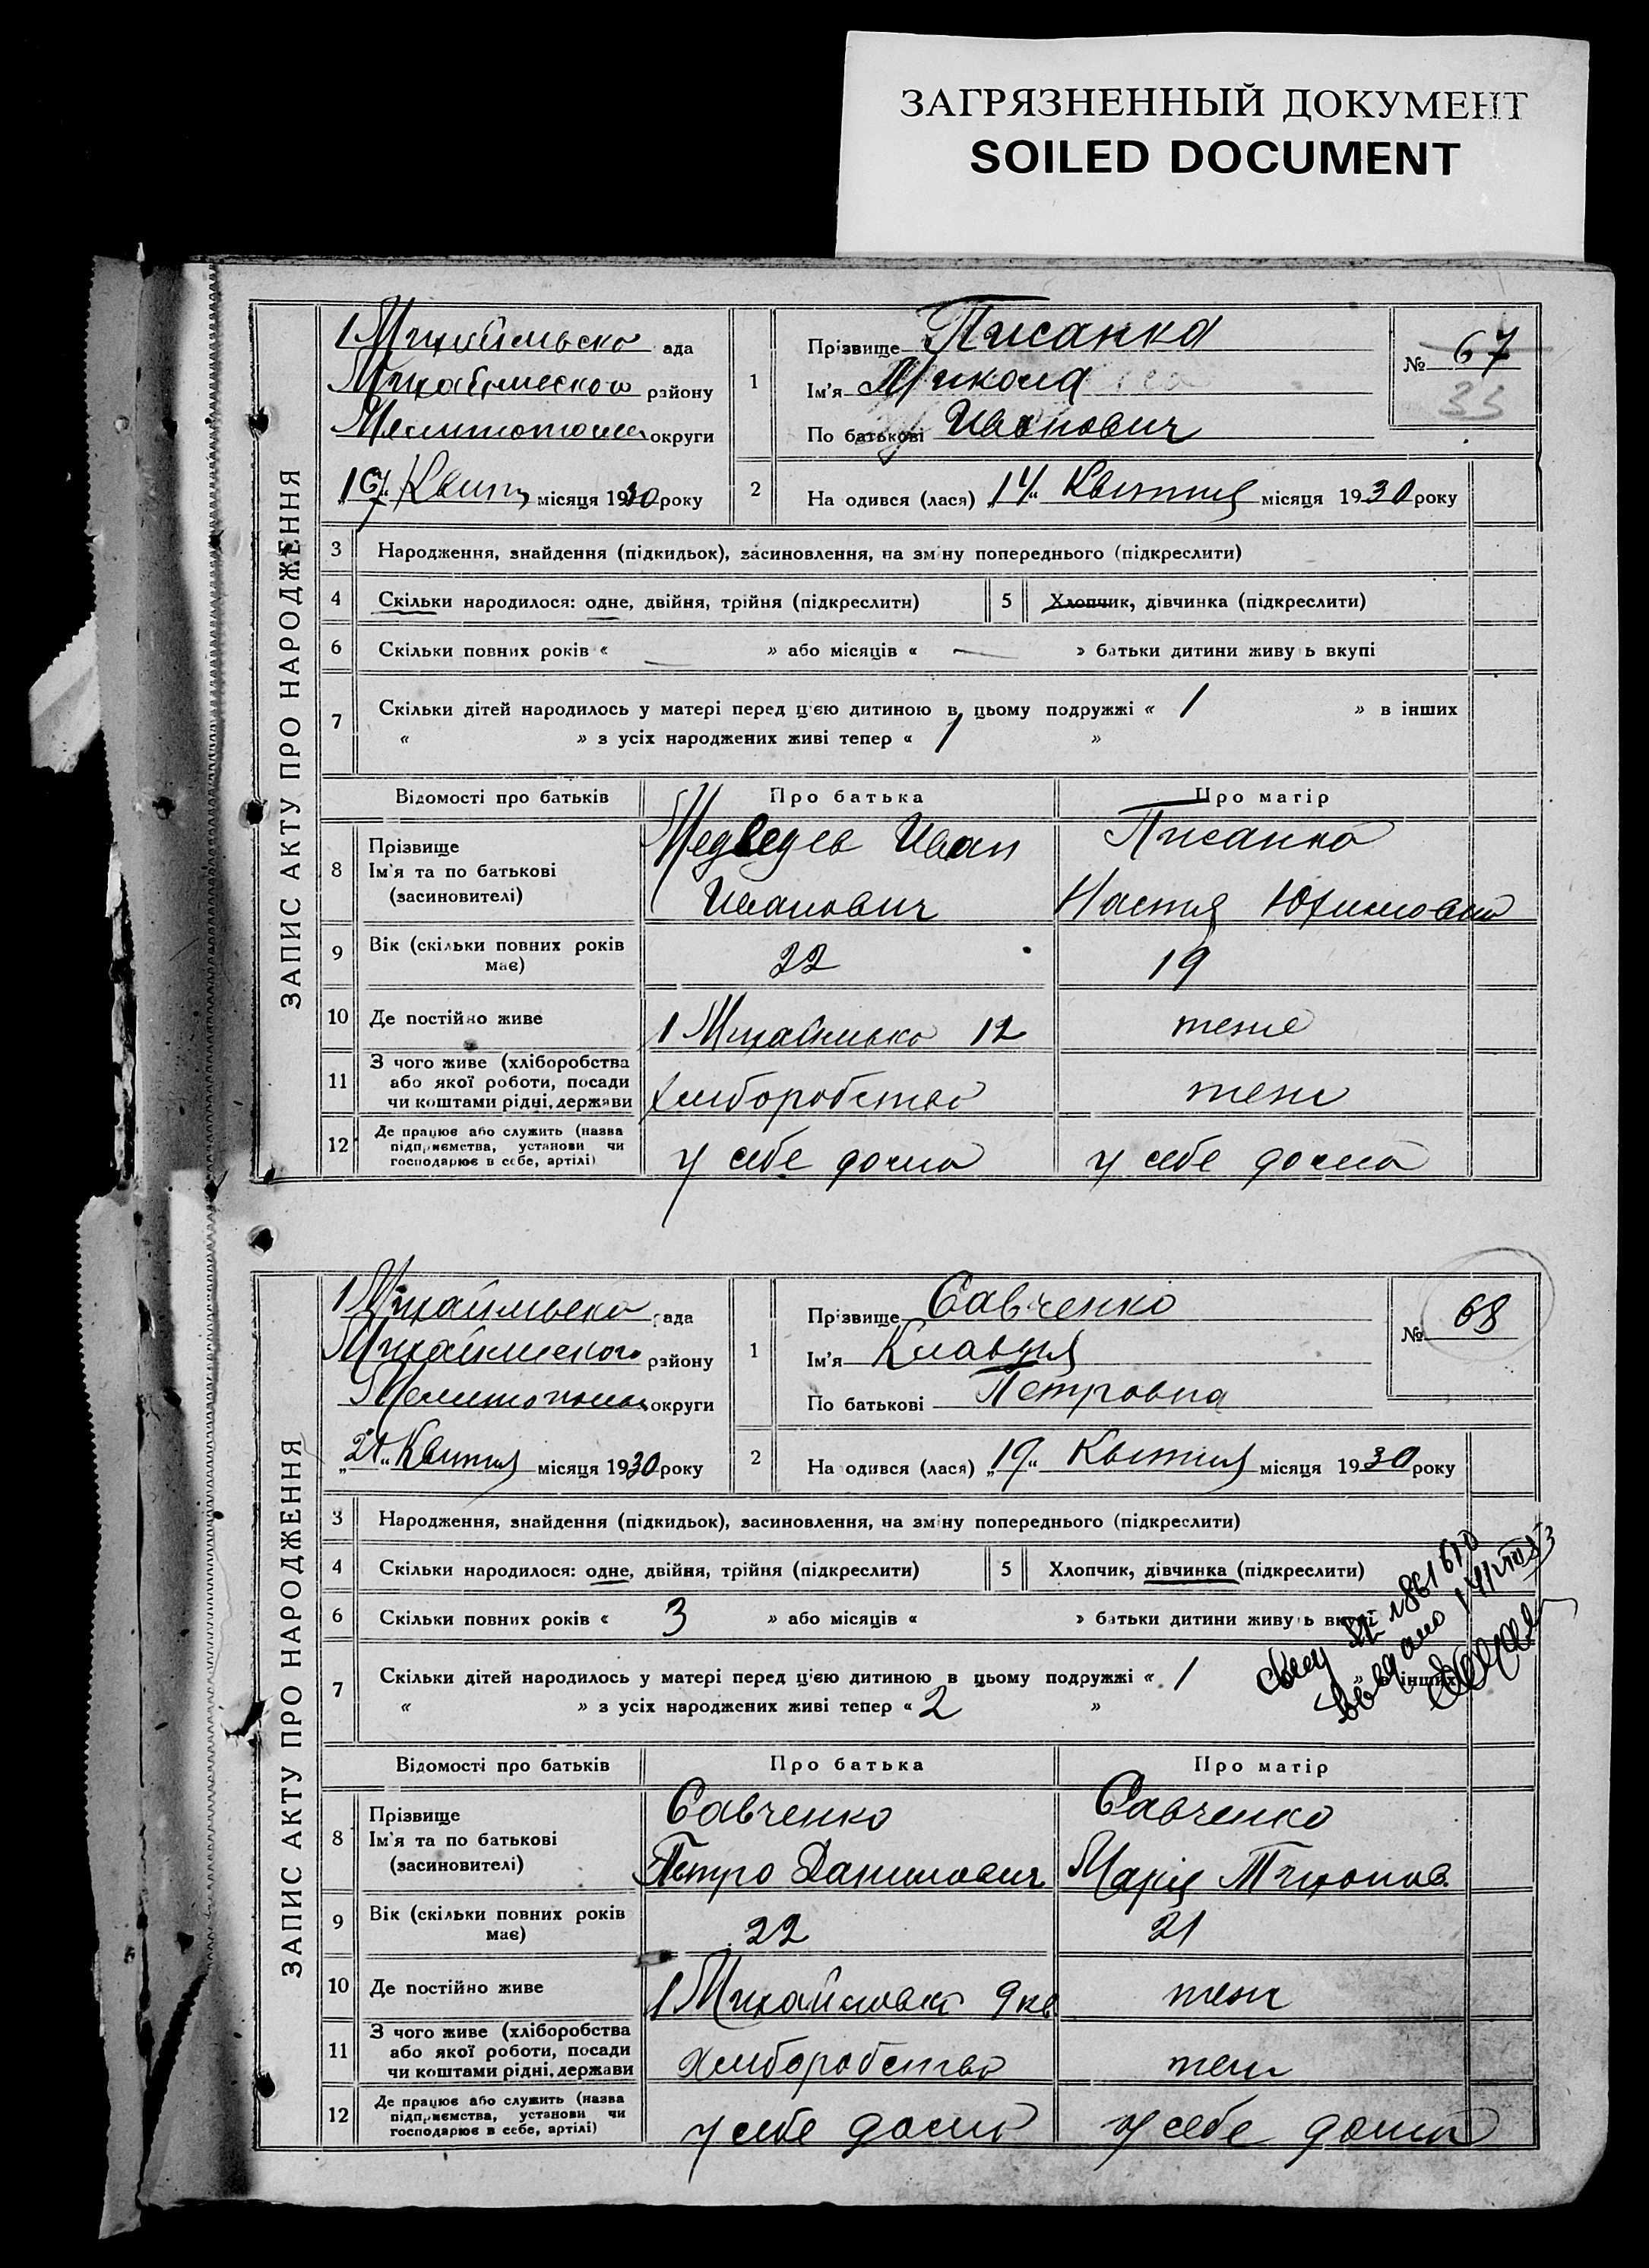 ЗАГРЯЗНЕННЫЙ ДОКУМЕНТ
SOILED DOCUMENT
ЗАПИС АКТУ ПРО НАРОДЖЕННЯ
ада
району
округи
місяця 1930 року
1
Прізвище Писанка
Ім'я Микола
По батькові Иванович
№ 67
33
2
На одився (лася) „14" Квитня місяця 1930 року
3 Народження, знайдення (підкидьок), засиновлення, на зміну попереднього (підкреслити)
4 Скільки народилося: одне, двійня, трійня (підкреслити)
5 Хлопчик, дівчинка (підкреслити)
6 Скільки повних років « — » або місяців « — » батьки дитини живу ь вкупі
7 Скільки дітей народилось у матері перед цією дитиною в цьому подружжі « 1 » в інших
« » з усіх народжених живі тепер « 1 »
Відомості про батьків
Про батька
Про матір
8 Прізвище
Ім'я та по батькові
(засновителі)
Медведев Иван
Иванович
Писанка
Настя
9 Вік (скільки повних років
має)
22
19
10 Де постійно живе
1 12
теже
11 З чого живе (хліборобства
або якої роботи, посади
чи коштами рідні, держави
хлиборобство
теж
12 Де працює або служить (назва
підприємства, установи чи
господарює в себе, артілі)
у себе дома
у себе дома
ЗАПИС АКТУ ПРО НАРОДЖЕННЯ
ада
району
округи
„21" Квитня місяця 1930 року
1
Прізвище Савченко
Ім'я Клавдия
По батькові Петровна
№ 68
2
На одився (лася) „19" Квитня місяця 1930 року
3 Народження, знайдення (підкидьок), засиновлення, на зміну попереднього (підкреслити)
4 Скільки народилося: одне, двійня, трійня (підкреслити)
5 Хлопчик, дівчинка (підкреслити)
6 Скільки повних років « 3 » або місяців « » батьки дитини живу ь вкупі
7 Скільки дітей народилось у матері перед цією дитиною в цьому подружжі « 1 » в інших
« » з усіх народжених живі тепер « 2 »
Відомості про батьків
Про батька
Про матір
8 Прізвище
Ім'я та по батькові
(засиновителі)
Савченко
Петро Данилович
Савченко
Мария Тихонов.
9 Вік (скільки повних років
має)
22
21
10 Де постійно живе
1 Михайловка 9 кв.
теж
11 З чого живе (хліборобства
або якої роботи, посади
чи коштами рідні, держави
хлиборобство
теж
12 Де працює або служить (назва
підприємства, установи чи
господарює в себе, артілі)
у себе дома
у себе дома